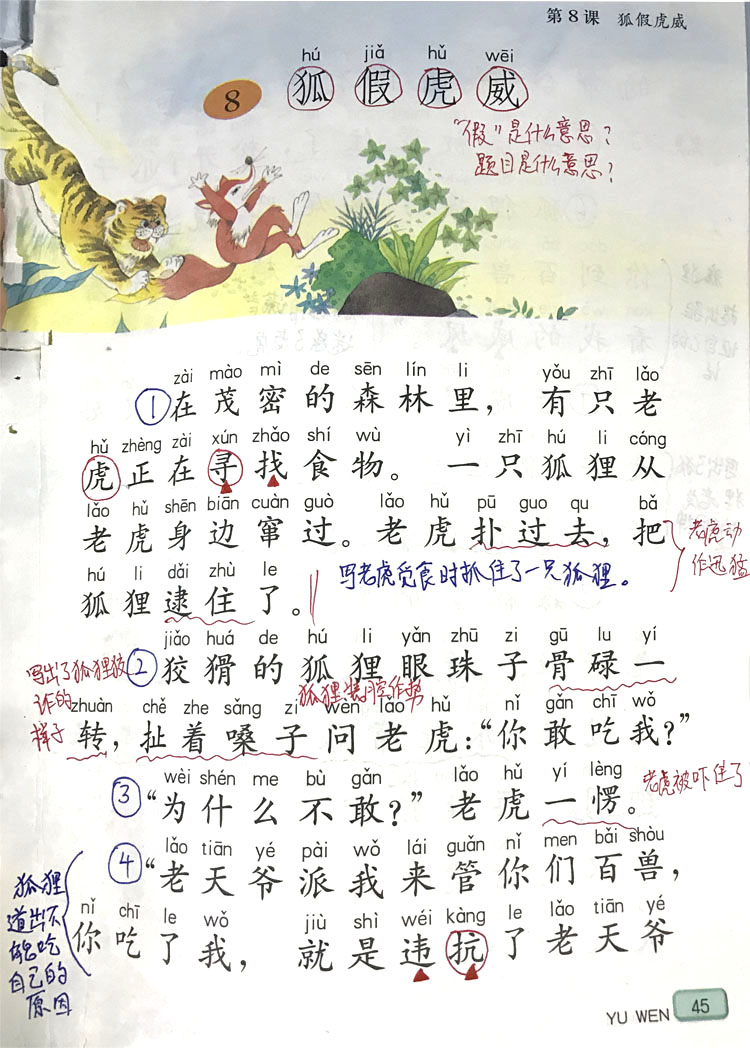 第8课 狐假虎威
hú jiǎ hǔ wēi
8 狐假虎威
“假”是什么意思？
题目是什么意思？
zài mào mì de sēn lín li yǒu zhī lǎo
①在茂密的森林里，有只老
hǔ zhèng zài xún zhǎo shí wù yì zhī hú li cóng
虎正在寻找食物。一只狐狸从
lǎo hǔ shēn biān cuàn guò lǎo hǔ pū guo qu bǎ
老虎身边窜过。老虎扑过去，把
老虎动
作迅猛
hú li dǎi zhù le
狐狸逮住了。
写老虎觅食时抓住了一只狐狸。
jiǎo huá de hú li yǎn zhū zi gū lu yí
②狡猾的狐狸眼珠子骨碌一
写出了狐狸狡
诈的
样子
狐狸装腔作势
zhuàn chě zhe sǎng zi wèn lǎo hǔ nǐ gǎn chī wǒ
转，扯着嗓子问老虎：“你敢吃我？”
wèi shén me bù gǎn lǎo hǔ yí lèng
③“为什么不敢？”老虎一愣。
老虎被吓住了
lǎo tiān yé pài wǒ lái guǎn nǐ men bǎi shòu
④“老天爷派我来管你们百兽，
nǐ chī le wǒ jiù shì wéi kàng le lǎo tiān yé
你吃了我，就是违抗了老天爷
狐狸
道出不
能吃
自己的
原因
YU WEN 45